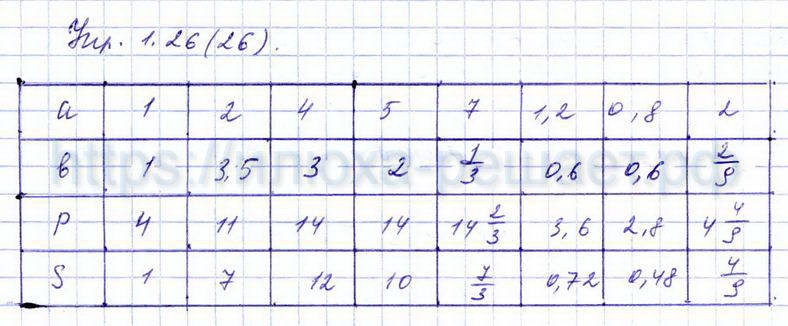 Упр. 1.26(26).
a 1 2 4 5 7 1,2 0,8 2
в 1 3,5 3 2 1/3 0,6 0,6 2/9
P 4 11 14 14 14 2/3 3,6 2,8 4 4/9
S 1 7 12 10 7/3 0,72 0,48 4/9
https://илюха-решает.рф